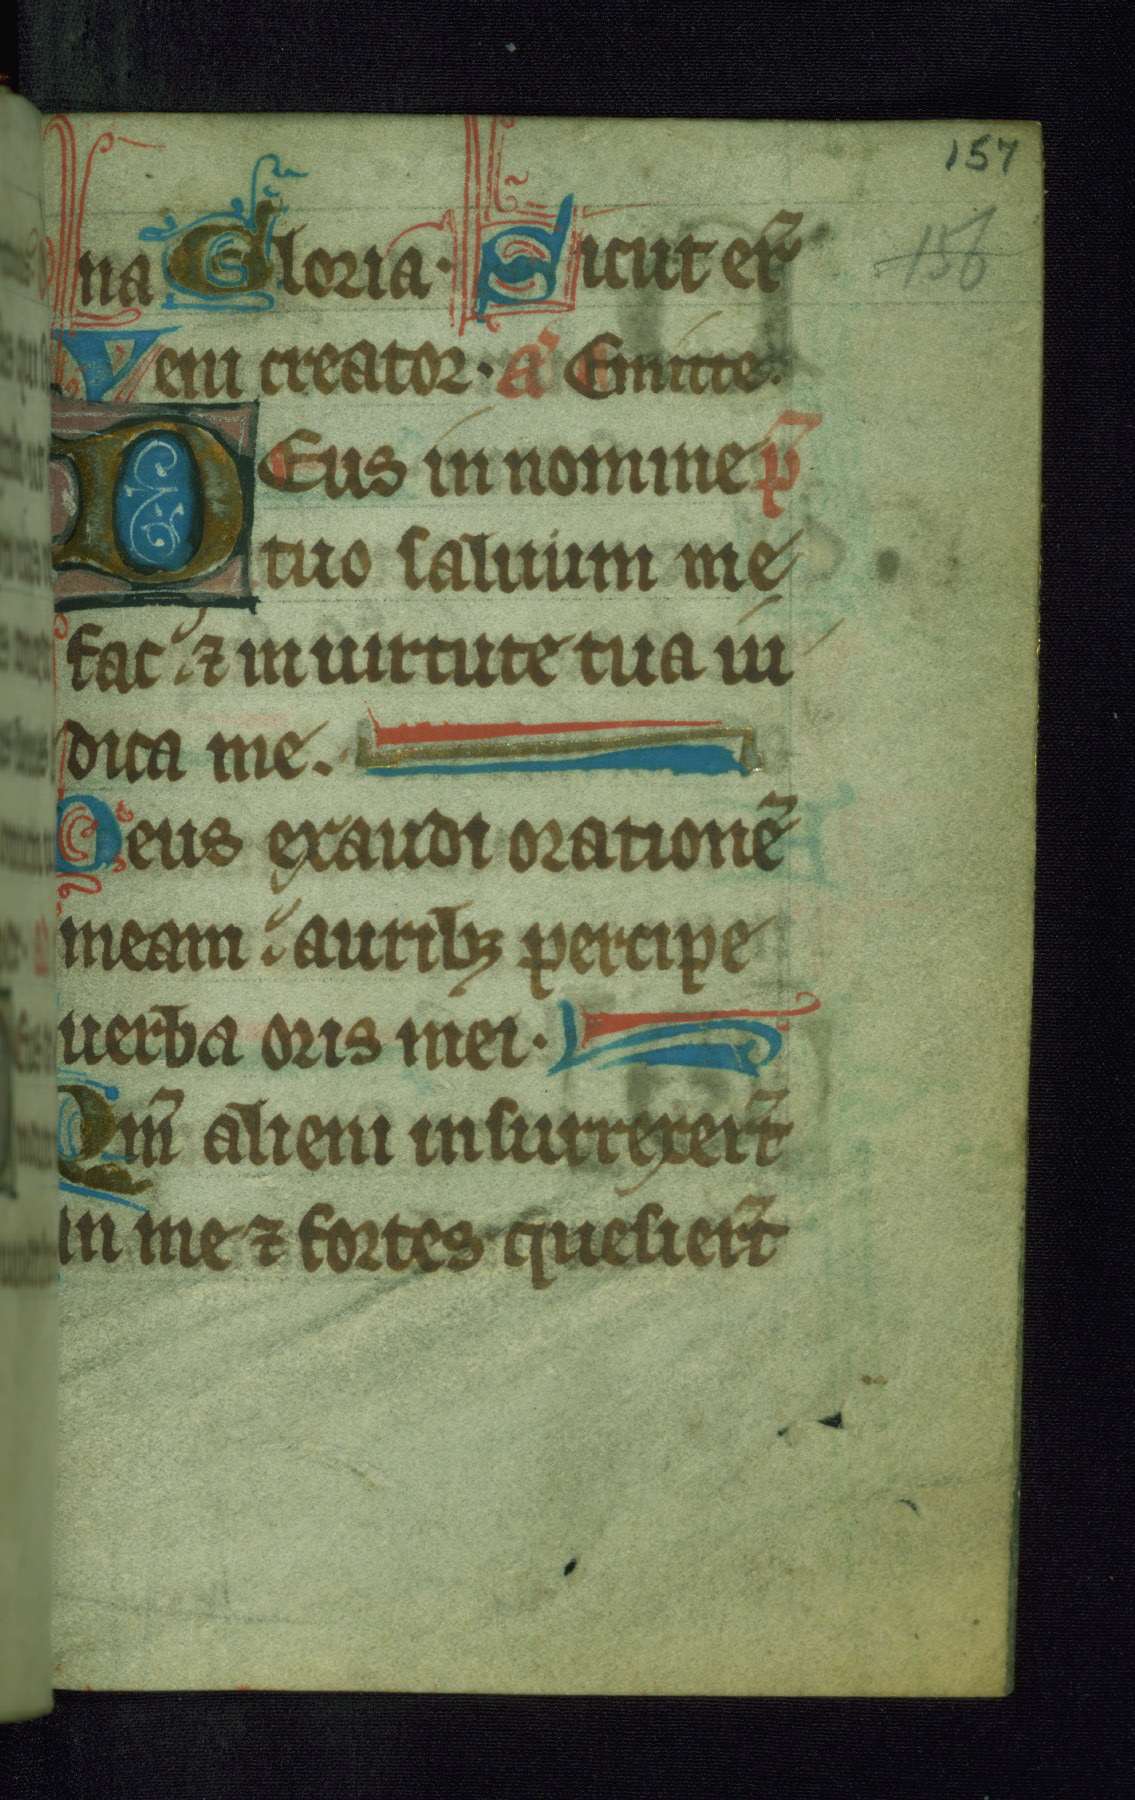 157
156
na Gloria· Sicut er̄
Veni creator· a᷎ Emitte.
DEus in nomine p̄
tuo saluum me
fac ⁊ in uirtute tua iu
dica me.
Deus exaudi orationē
meam auribꝫ percipe
uerba oris mei·
Qm̄ alieni insurrexer̄t
in me ⁊ fortes quesier̄t